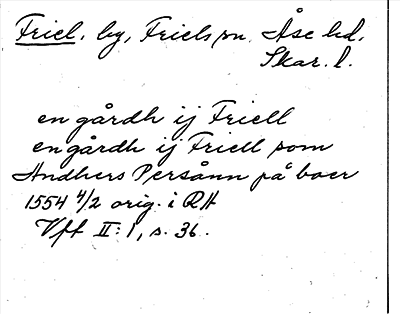 Friel, by, Friels sn. Åse hd.
Skar. l.
en gårdh ij Friell
en gårdh ij Friell som
Andhers Persånn på boer
1554 4/2 orig. i RA
Vft II:1, s. 36.